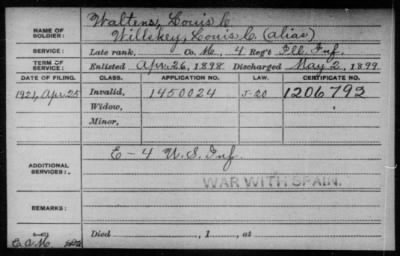 NAME OF SOLDIER: Waltens, Louis C.
Willekey, Louis C. (alias)
SERVICE: Late rank, Co. M, 4 Reg't Ill. Inf.
TERM OF SERVICE: Enlisted Apr. 26, 1898 Discharged May 2, 1899
DATE OF FILING. CLASS. APPLICATION NO. LAW. CERTIFICATE NO.
1921, Apr. 25 Invalid, 1450024 J-20 1206793
Widow,
Minor,
ADDITIONAL SERVICES: E-4 U.S. Inf.
WAR WITH SPAIN.
REMARKS:
Died , 1 , at